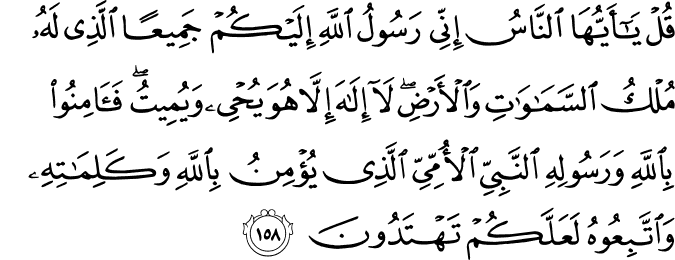 قُلْ يَٰٓأَيُّهَا ٱلنَّاسُ إِنِّى رَسُولُ ٱللَّهِ إِلَيْكُمْ جَمِيعًا ٱلَّذِى لَهُۥ
مُلْكُ ٱلسَّمَٰوَٰتِ وَٱلْأَرْضِ ۖ لَآ إِلَٰهَ إِلَّا هُوَ يُحْىِۦ وَيُمِيتُ ۖ فَـَٔامِنُوا۟
بِٱللَّهِ وَرَسُولِهِ ٱلنَّبِىِّ ٱلْأُمِّىِّ ٱلَّذِى يُؤْمِنُ بِٱللَّهِ وَكَلِمَٰتِهِۦ
وَٱتَّبِعُوهُ لَعَلَّكُمْ تَهْتَدُونَ ١٥٨